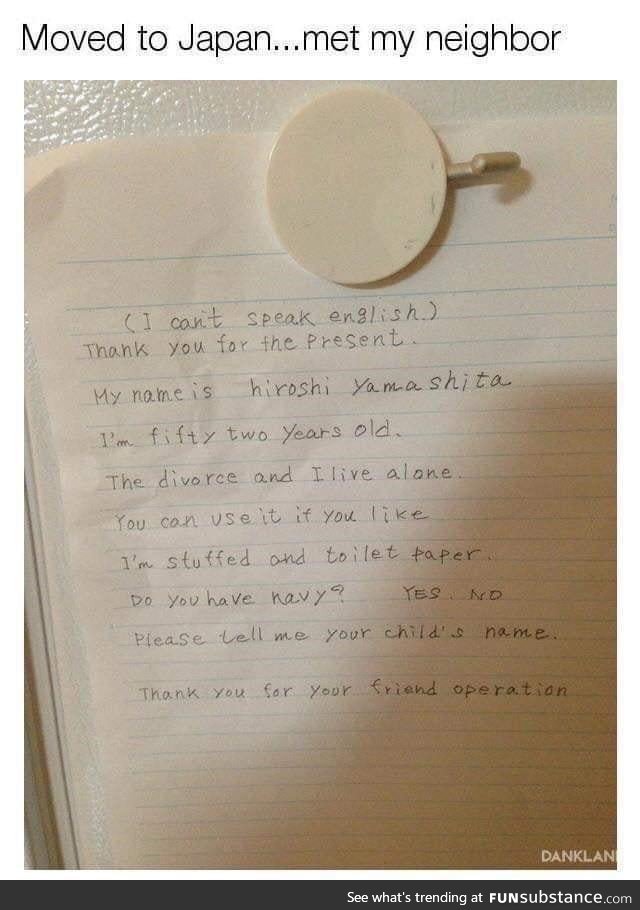 Moved to Japan...met my neighbor
(I can't speak english.)
Thank you for the Present.
My name is hiroshi Yamashita
I'm fifty two Years old.
The divorce and I live alone.
You can use it if you like
I'm stuffed and toilet paper.
Do you have navy? YES. NO
Please tell me your child's name.
Thank you for your friend operation
DANKLAN
See what's trending at FUNsubstance.com